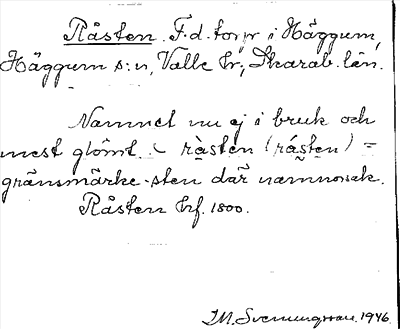 Råsten F.d. torp i Häggum,
Häggums sn, Valle hr; Skarab. län.
Namnet nu ej i bruk och
mest glömt. ~ råsten (råsten) =
gränsmärke-sten där namnorsak.
Råsten hrf. 1800.
I.M. Svenungsson. 1946.